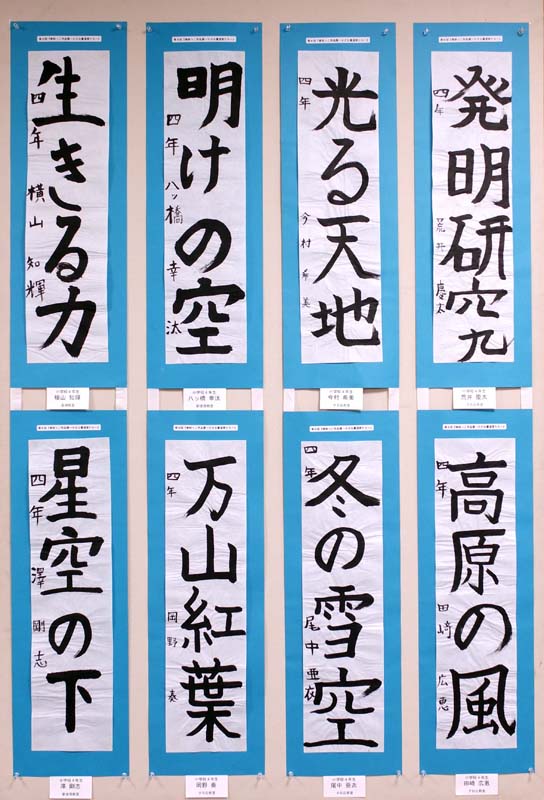 発明研究
四年
荒井慶太
小学校4年生
荒井慶太
光る天地
四年
今村希美
小学校4年生
今村希美
明けの空
四年
八ッ橋幸汰
小学校4年生
八ッ橋幸汰
生きる力
四年
横山知輝
小学校4年生
横山知輝
高原の風
四年
田崎広恵
小学校4年生
田崎広恵
冬の雪空
四年
尾中亜衣
小学校4年生
尾中亜衣
万山紅葉
四年
岡野奏
小学校4年生
岡野奏
星空の下
四年
澤剛志
小学校4年生
澤剛志